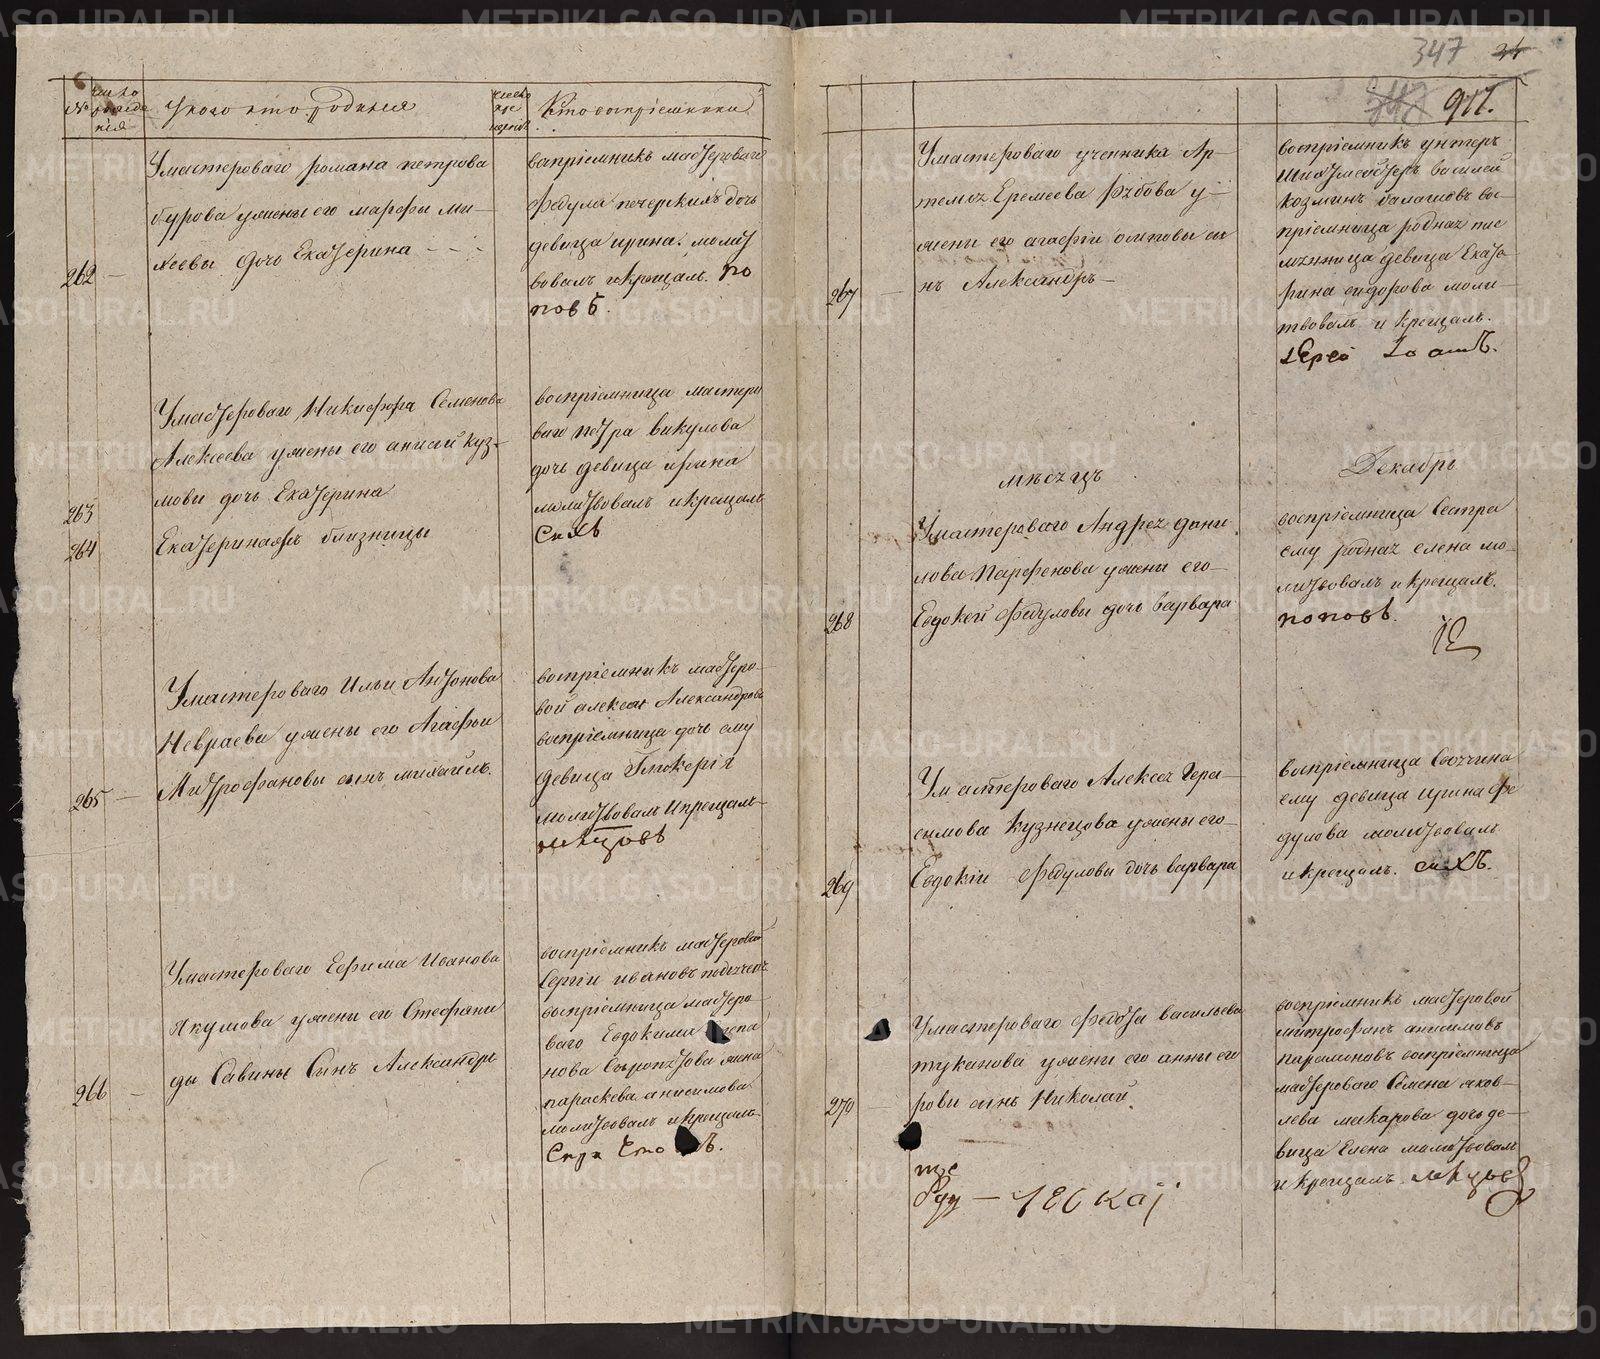 №
число рожде нія
У кого кто родился
число кре щенія
Кто воспріемники
262
У мастероваго романа петрова
бурова у жены его марфы ми
хеевы дочь Екатерина
воспріемникъ мастероваго
Федула печерскихъ дочь
девица ирина. молит
вовалъ и крещалъ. по
повъ.
263
264
У мастероваго Никифора Семенова
Алексеева у жены его анисіи куз
мовы дочь Екатерина
Екатерина близницы
воспріемница мастеро
ваго петра викулова
дочь девица ирина
молитвовалъ и крещалъ
265
У мастероваго Ильи Антонова
Невраева у жены его Агафьи
Митрофановы сынъ михаилъ.
воспріемникъ мастеро
вой алексей Александровъ
воспріемница дочь ему
девица Гликерія
молитвовалъ и крещалъ
266
У мастероваго Ефима Иванова
Якумова у жены его Стефани
ды Савины Сынъ Александръ
воспріемникъ мастеровой
Сергіи ивановъ
воспріемница мастеро
ваго Евдокима
нова жена
параскева анисимова
молитвовалъ и крещалъ
347
917.
267
У мастероваго ученика Ар
темья Еремеева у
жены его агафіи осиповы сы
нъ Александръ
воспріемникъ унтеръ
шихтмейстеръ василей
козминъ балашовъ во
спріемница родная пле
мянница девица Екате
рина сидорова моли
твовалъ и крещалъ.
Іерей Іоаннъ.
месяцъ
Декабрь
268
У мастероваго Андрея дани
лова Парфенова у жены его
Евдокеи Федуловы дочь варвара
воспріемница Сестра
ему родная елена мо
литвовалъ и крещалъ.
поповъ.
269
У мастероваго Алексея Гера
симова Кузнецова у жены его
Евдокіи Федуловы дочь варвара
воспріемница Своячина
ему девица ирина фе
дулова молитвовалъ
и крещалъ.
270
У мастероваго Федота васильева
туканова у жены его анны его
ровы сынъ Николай
воспріемникъ мастеровой
митрофанъ анисимовъ
парамоновъ воспріемница
мастероваго Семена яков
лева макарова дочь де
вица Елена молитвовалъ
и крещалъ
METRIKI.GASO-URAL.RU